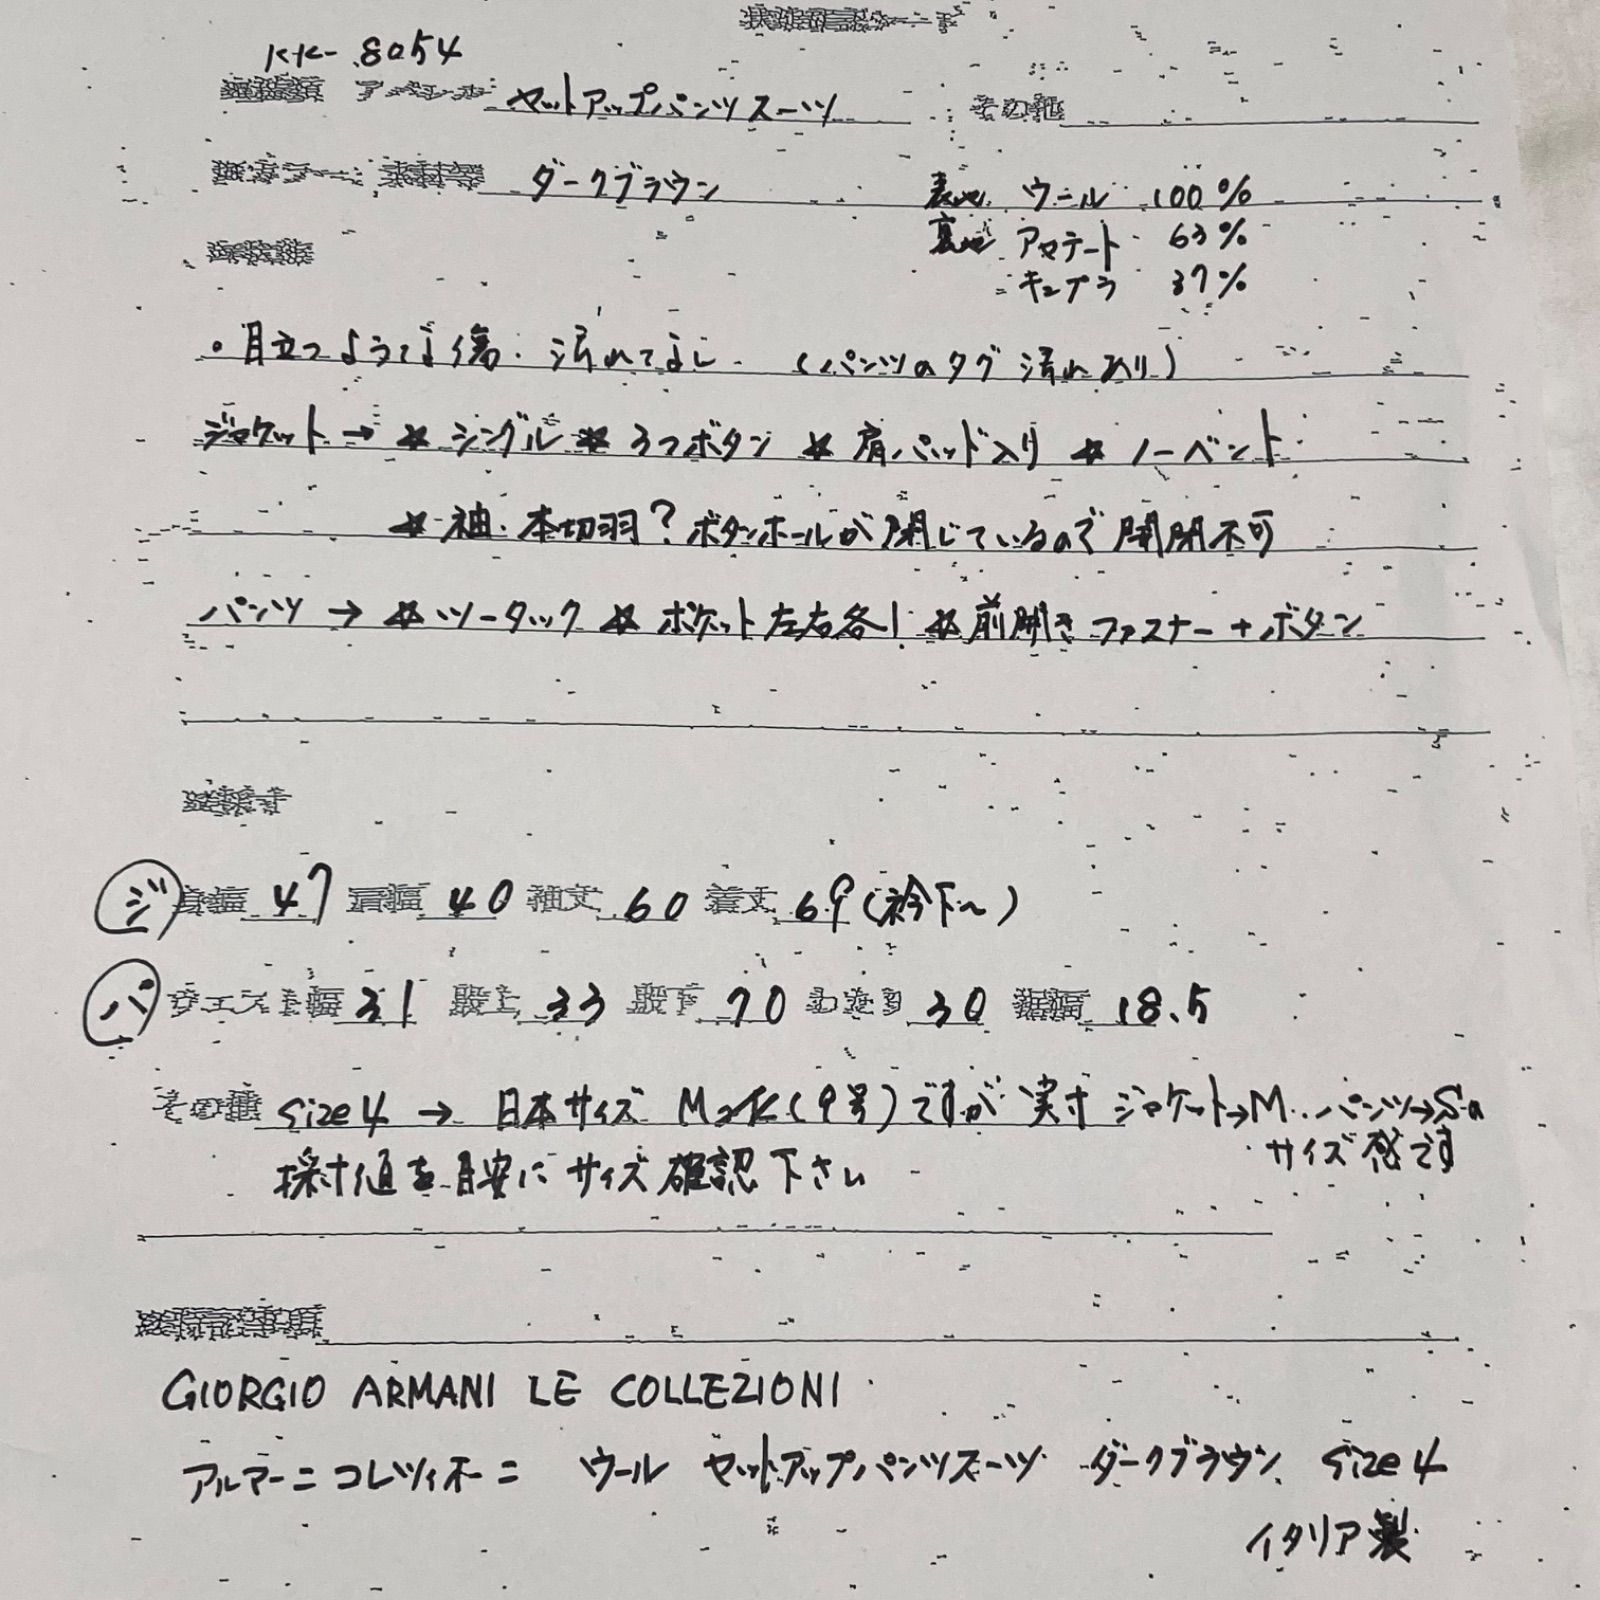 KK-8054
アパレル セットアップパンツスーツ その他
カラー・素材等 ダークブラウン 表地 ウール 100%
裏地 アセテート 63%
キュプラ 37%
・目立つような傷・汚れてなし (パンツのタグ 汚れあり)
ジャケット→☆シングル☆3つボタン ☆肩パッド入り ☆ノーベント
☆袖・本切羽?ボタンホールが閉じているので開閉不可
パンツ→☆ツータック ☆ポケット左右各1 ☆前開きファスナー+ボタン
ジ 身幅 47 肩幅 40 袖丈 60 着丈 69(衿下〜)
パ ウエスト幅 31 股上 33 股下 70 わたり 30 裾幅 18.5
その他 size4 → 日本サイズ M2K(9号)ですが 実寸 ジャケット→M・パンツ→Sの
サイズ感です
採寸値を目安にサイズ確認下さい
GIORGIO ARMANI LE COLLEZIONI
アルマーニ コレツィオーニ ウール セットアップパンツスーツ ダークブラウン size4
イタリア製